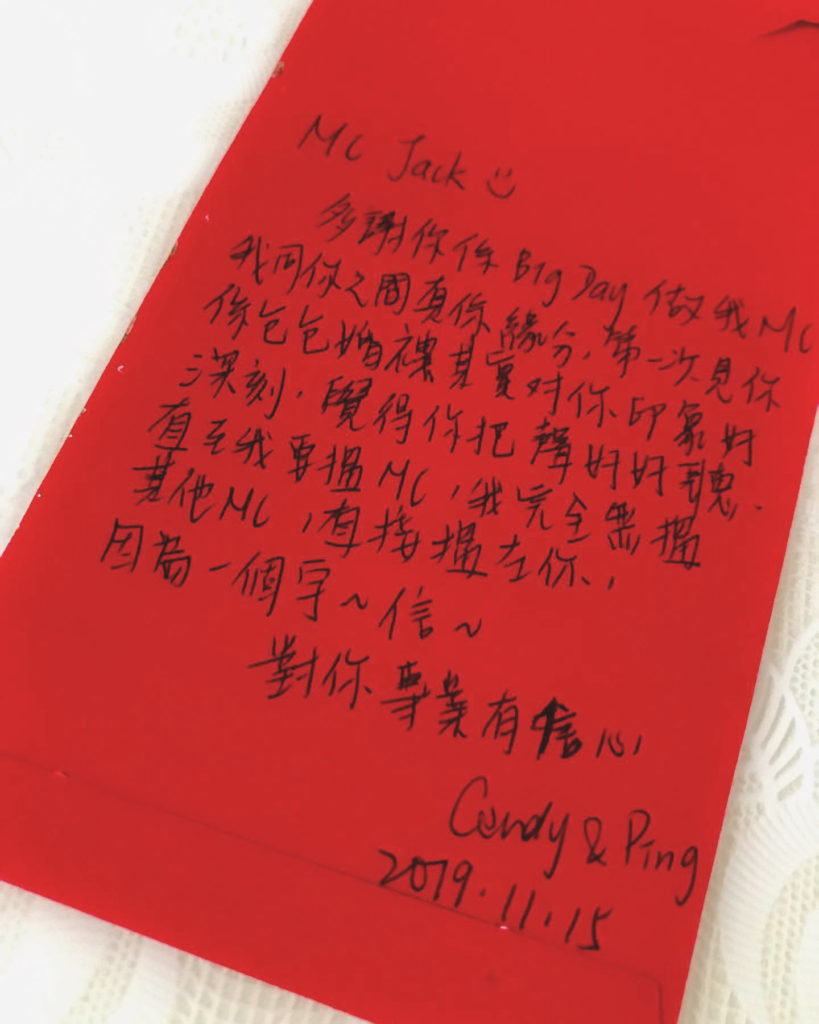 MC Jack
多謝你係 Big Day 做我 MC
我同你之間真係緣分, 第一次見你
係包包婚禮其實对你印象好
深刻. 覺得你把聲好好聽.
直至我要搵 MC, 我完全無搵
其他 MC, 直接搵左你,
因為一個字~信~
對你專業有信心
Candy & Ping
2019.11.15